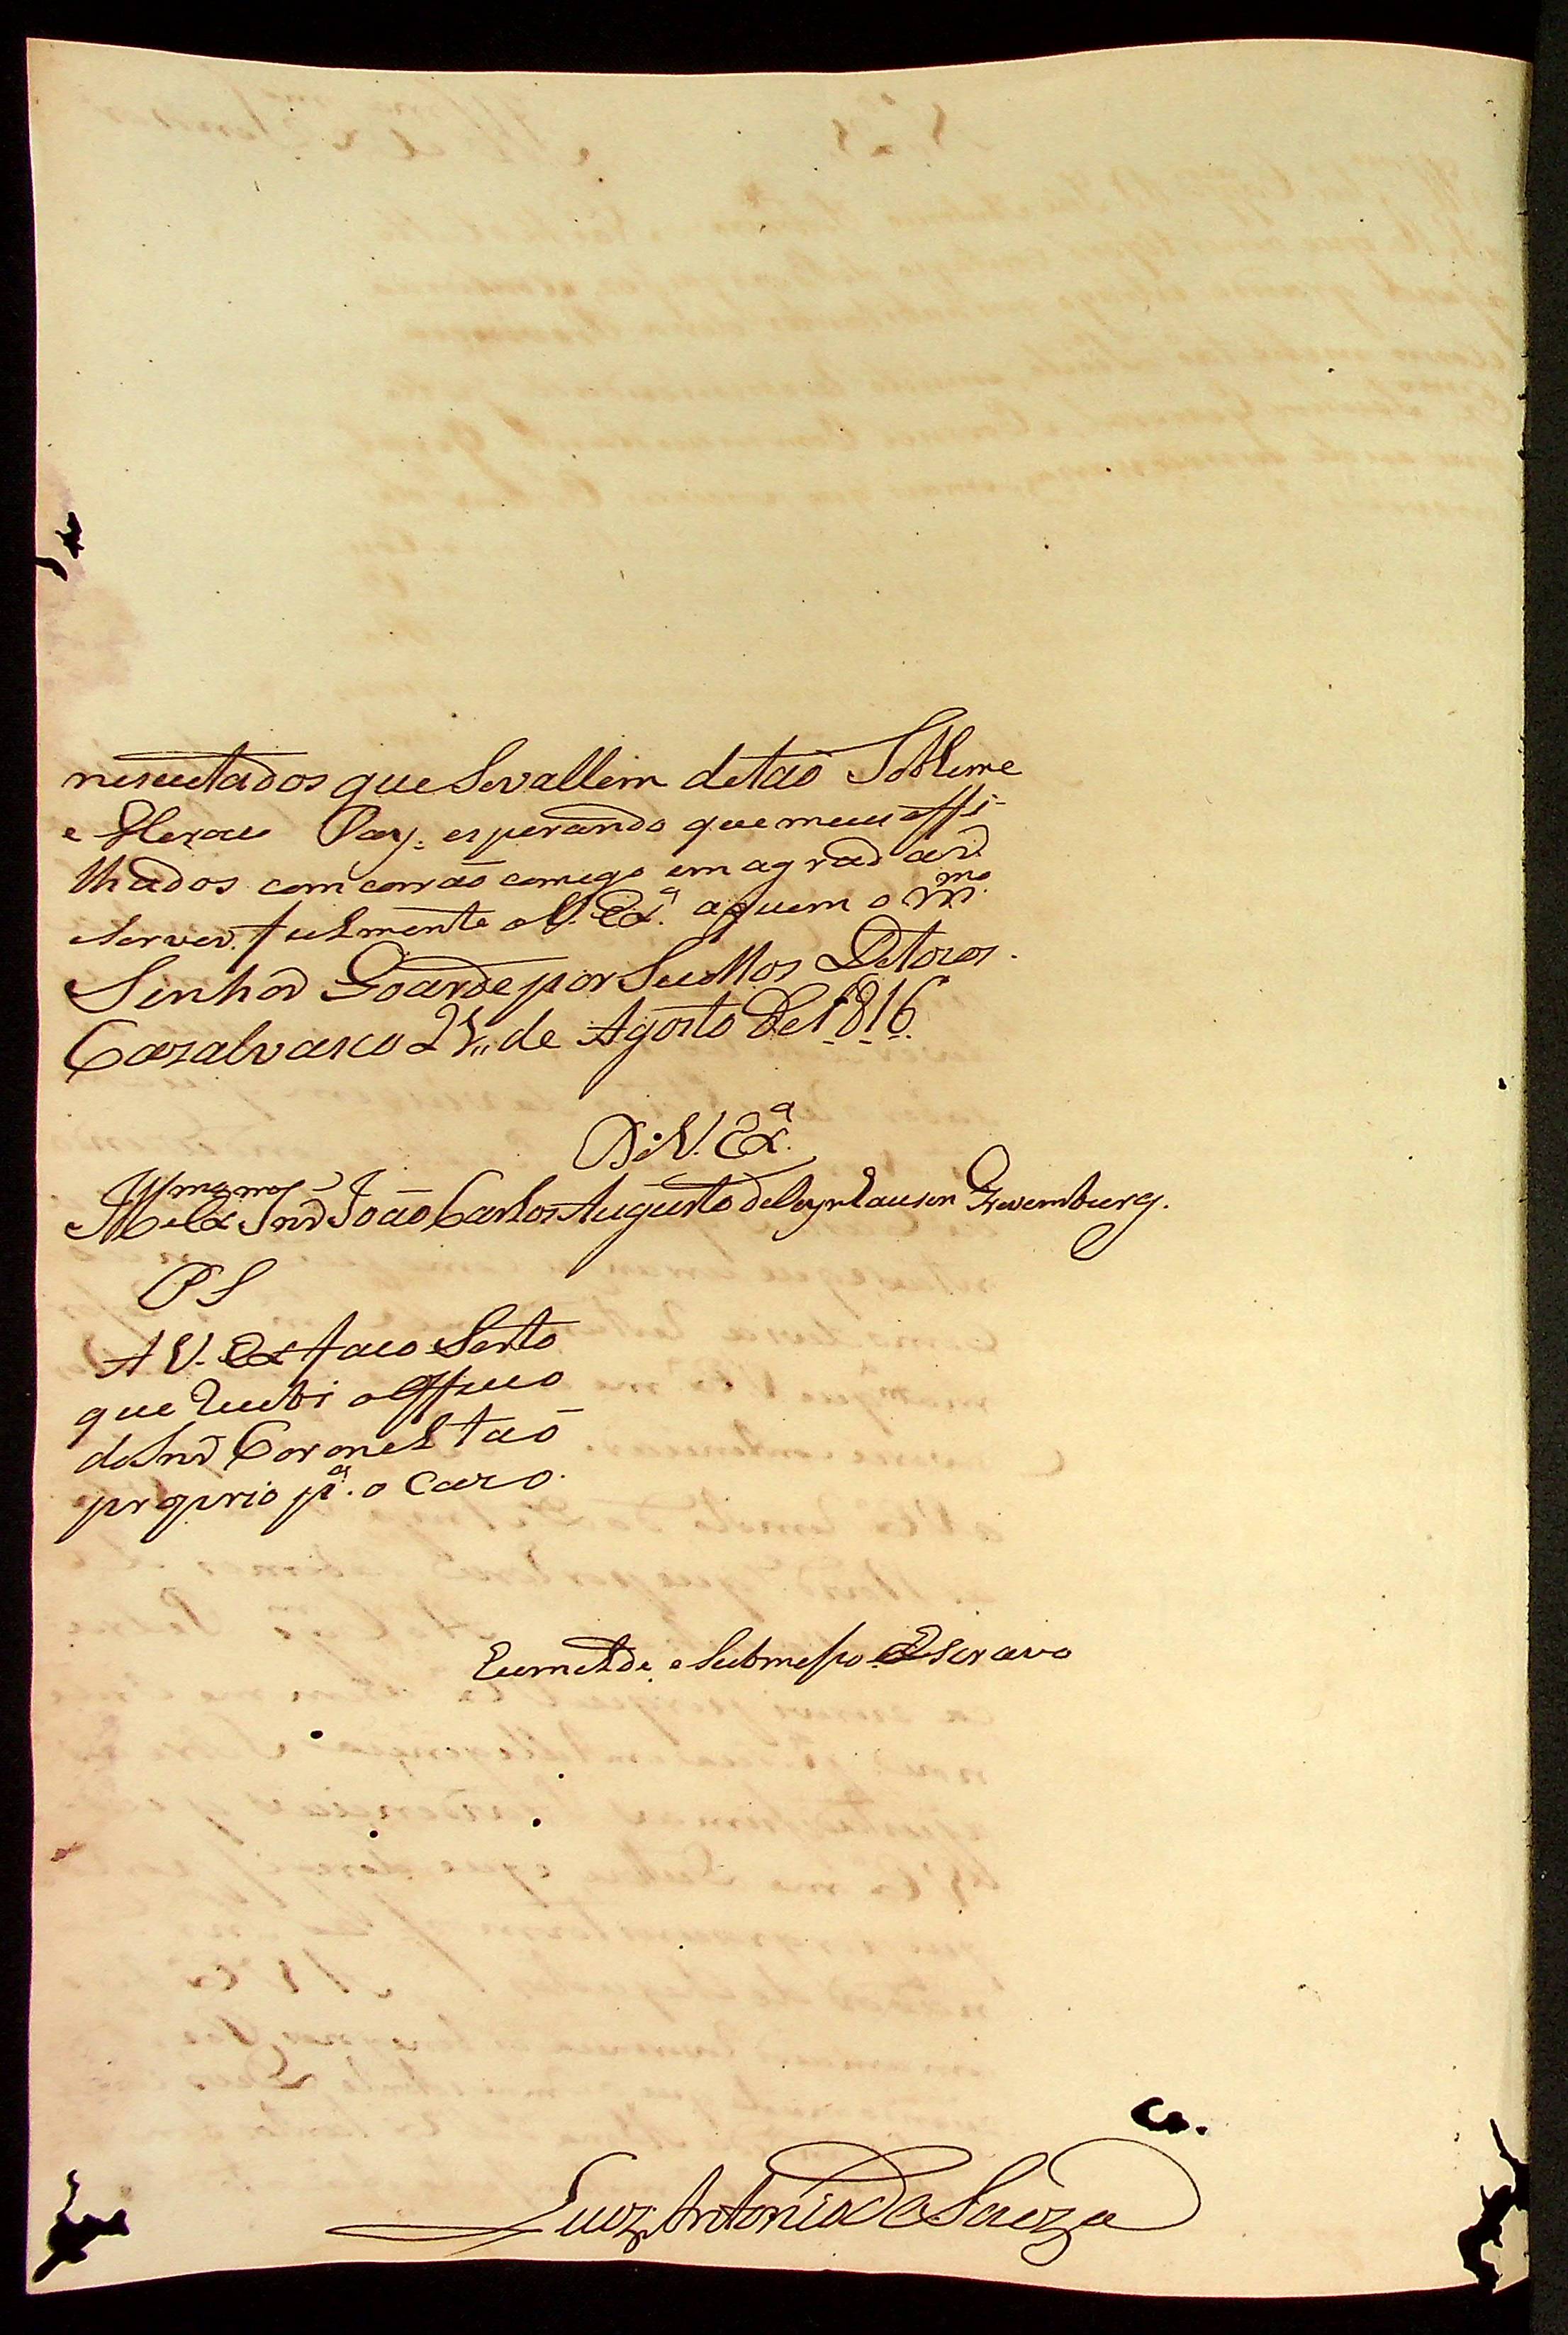 nesecitados que Sevallem detaõ Soblime
e Heroeu Pay: esperando que meus affi=
lhados com corraõ comego em agradar
Server. fielmente a V. Exª. aquem o mmº.
Senhor Goarde por Seus ditozos
Cazalvasco 25,, de Agosto de 1816
De V. Exª.
Illmº e Exmº Snr João Carlos Augusto de Oeynhausen Grevemburg.
PS
A V. Exª faco Serto
que recebi o Officio
do Snr Coronel taõ
proprio pª. o Cazo.
Eumelde, e Submesso Escravo
Luiz Antonio de Souza